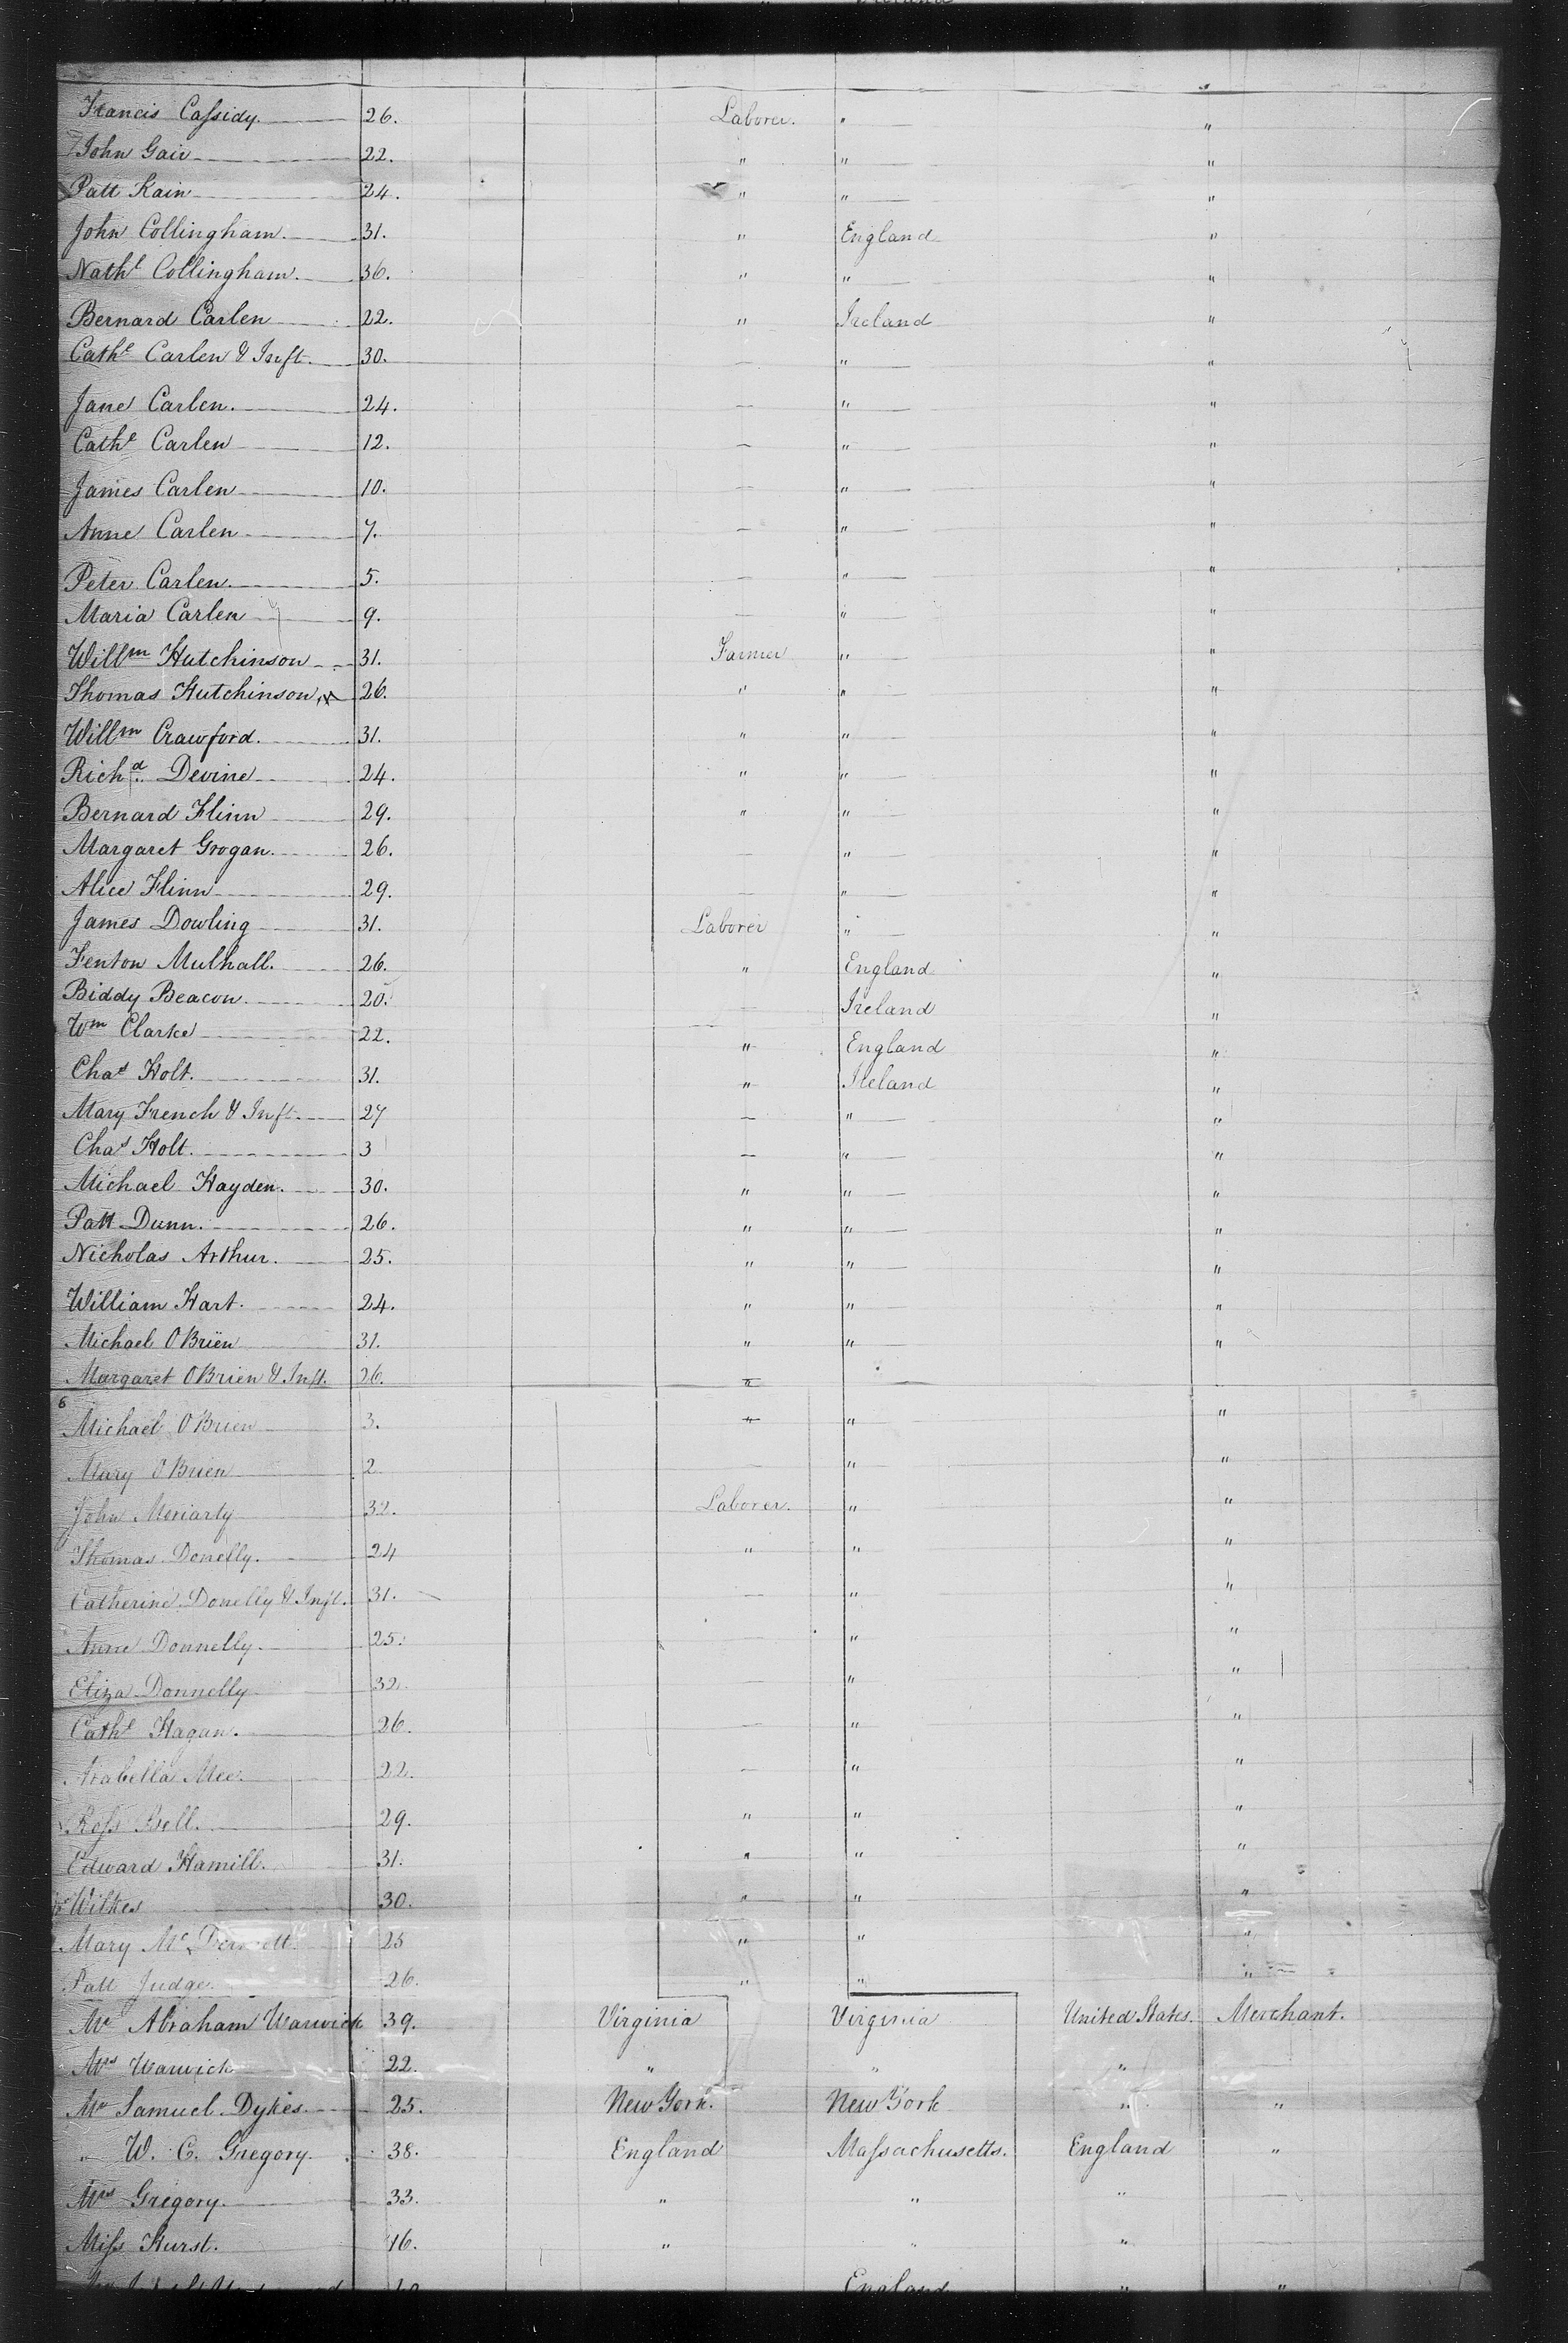 Ireland
Francis Cassidy. 26. Laborer. " "
John Gair 22. " " "
Patt Kain 24. " " "
John Collingham. 31. " England "
Nathl Collingham. 36. " " "
Bernard Carlen 22. " Ireland "
Cathe Carlen & Inft. 30. — " "
Jane Carlen. 24. — " "
Cathe Carlen 12. — " "
James Carlen 10. — " "
Anne Carlen 7. — " "
Peter Carlen. 5. — " "
Maria Carlen 9. — " "
Willm Hutchinson 31. Farmer " "
Thomas Hutchinson 26. " " "
Willm Crawford. 31. " " "
Richd Devine 24. " " "
Bernard Flinn 29. " " "
Margaret Grogan. 26. — " "
Alice Flinn 29. — " "
James Dowling 31. Laborer " "
Fenton Mulhall. 26. " England "
Biddy Beacon. 20. — Ireland "
Wm Clarke 22. " England "
Chas Holt. 31. " Ireland "
Mary French & Inft. 27 — " "
Chas Holt. 3 — " "
Michael Hayden. 30. " " "
Patt Dunn. 26. " " "
Nicholas Arthur. 25. " " "
William Hart. 24. " " "
Michael OBrien 31. " " "
Margaret OBrien & Inft. 26.
6
Michael OBrien 3. " "
Mary OBrien 2 — " "
John Moriarty 32. Laborer. " "
Thomas Donelly. 24 " " "
Catherine Donelly & Inft. 31. — " "
Anne Donnelly. 25. — " "
Eliza Donnelly 32. — " "
Cathe Hagan. 26. — " "
Arabella Mee. 22. — " "
Ross Bell. 29. " " "
Edward Hamill. 31. " " "
Wilkes 30. " " "
Mary Mc 25 " " "
Patt Judge. 26. " " "
Mr Abraham Warwick 39. Virginia Virginia United States. Merchant.
Mrs Warwick 22. " " " —
Mr Samuel Dykes. 25. New York. New York " "
" W. C. Gregory. 38. England Massachusetts. England "
Mrs Gregory. 33. " " " —
Miss Hurst. 16. " " " —
England " "